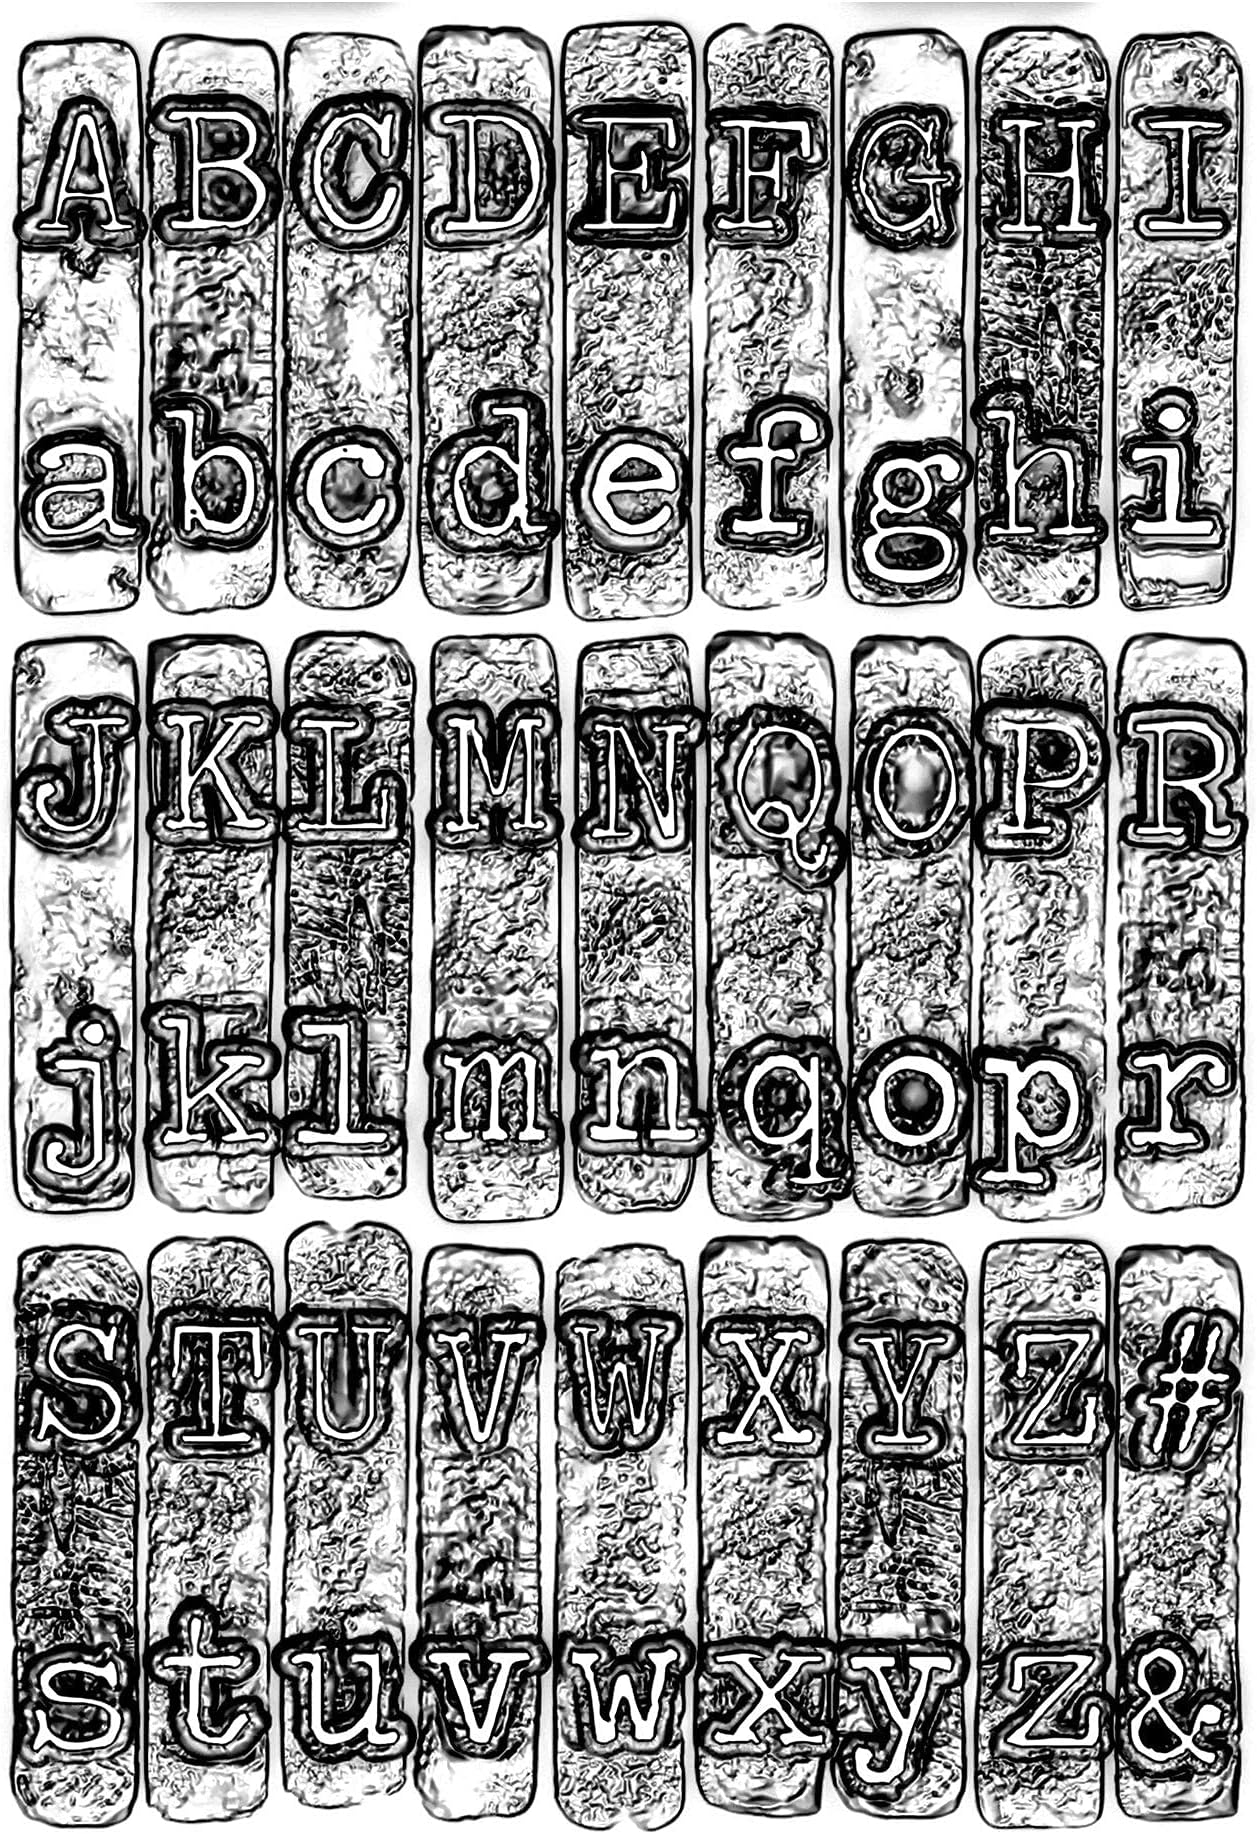 A B C D E F G H I
a b c d e f g h i
J K L M N Q O P R
j k l m n q o p r
S T U V W X Y Z #
s t u v w x y z &